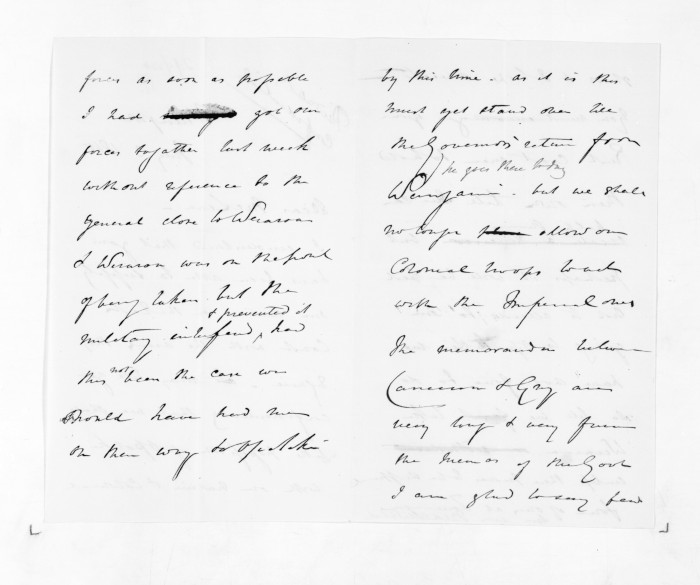 forces as soon as possible
I had got our
forces together last week
without reference to the
General close to Weraroa
& Weraroa was on the point
of being taken but the
& prevented it
military interfered, had
this not been the case we
should have had men
on their way to Opotiki
by this time. as it is this
must yet stand over till
the Governors return from
he goes there today
Wanganui. but we shall
no longer allow our
Colonial troops to act
with the Imperial ones
The memoranda between
Cameron & Grey are
very long & very
the Memos of the Govt
I am glad to say